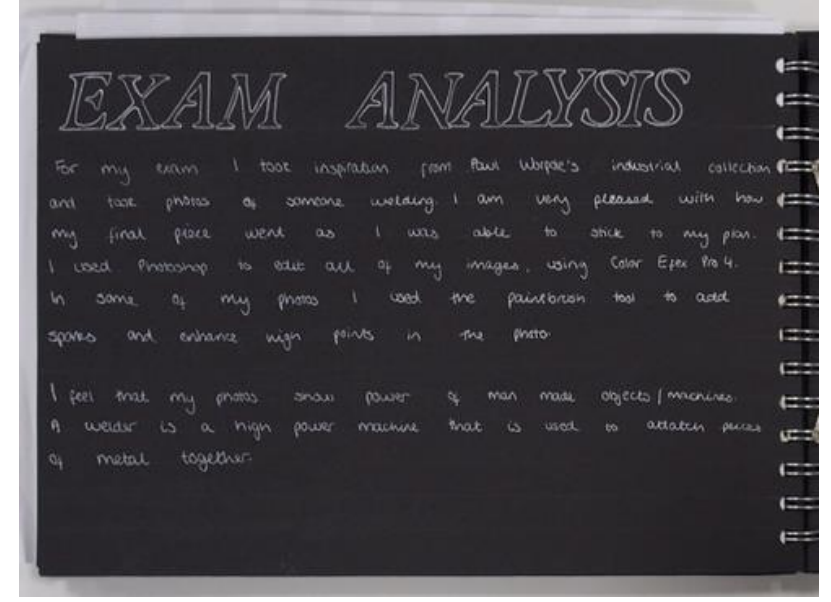 EXAM ANALYSIS
For my exam I took inspiration from Paul Worpole's industrial collection
and took photos of someone welding. I am very pleased with how
my final piece went as I was able to stick to my plan.
I used Photoshop to edit all of my images, using Color Efex Pro 4.
In some of my photos I used the paintbrush tool to add
sparks and enhance high points in the photo.
I feel that my photos show power of man made objects/machines.
A welder is a high power machine that is used to attatch pieces
of metal together.